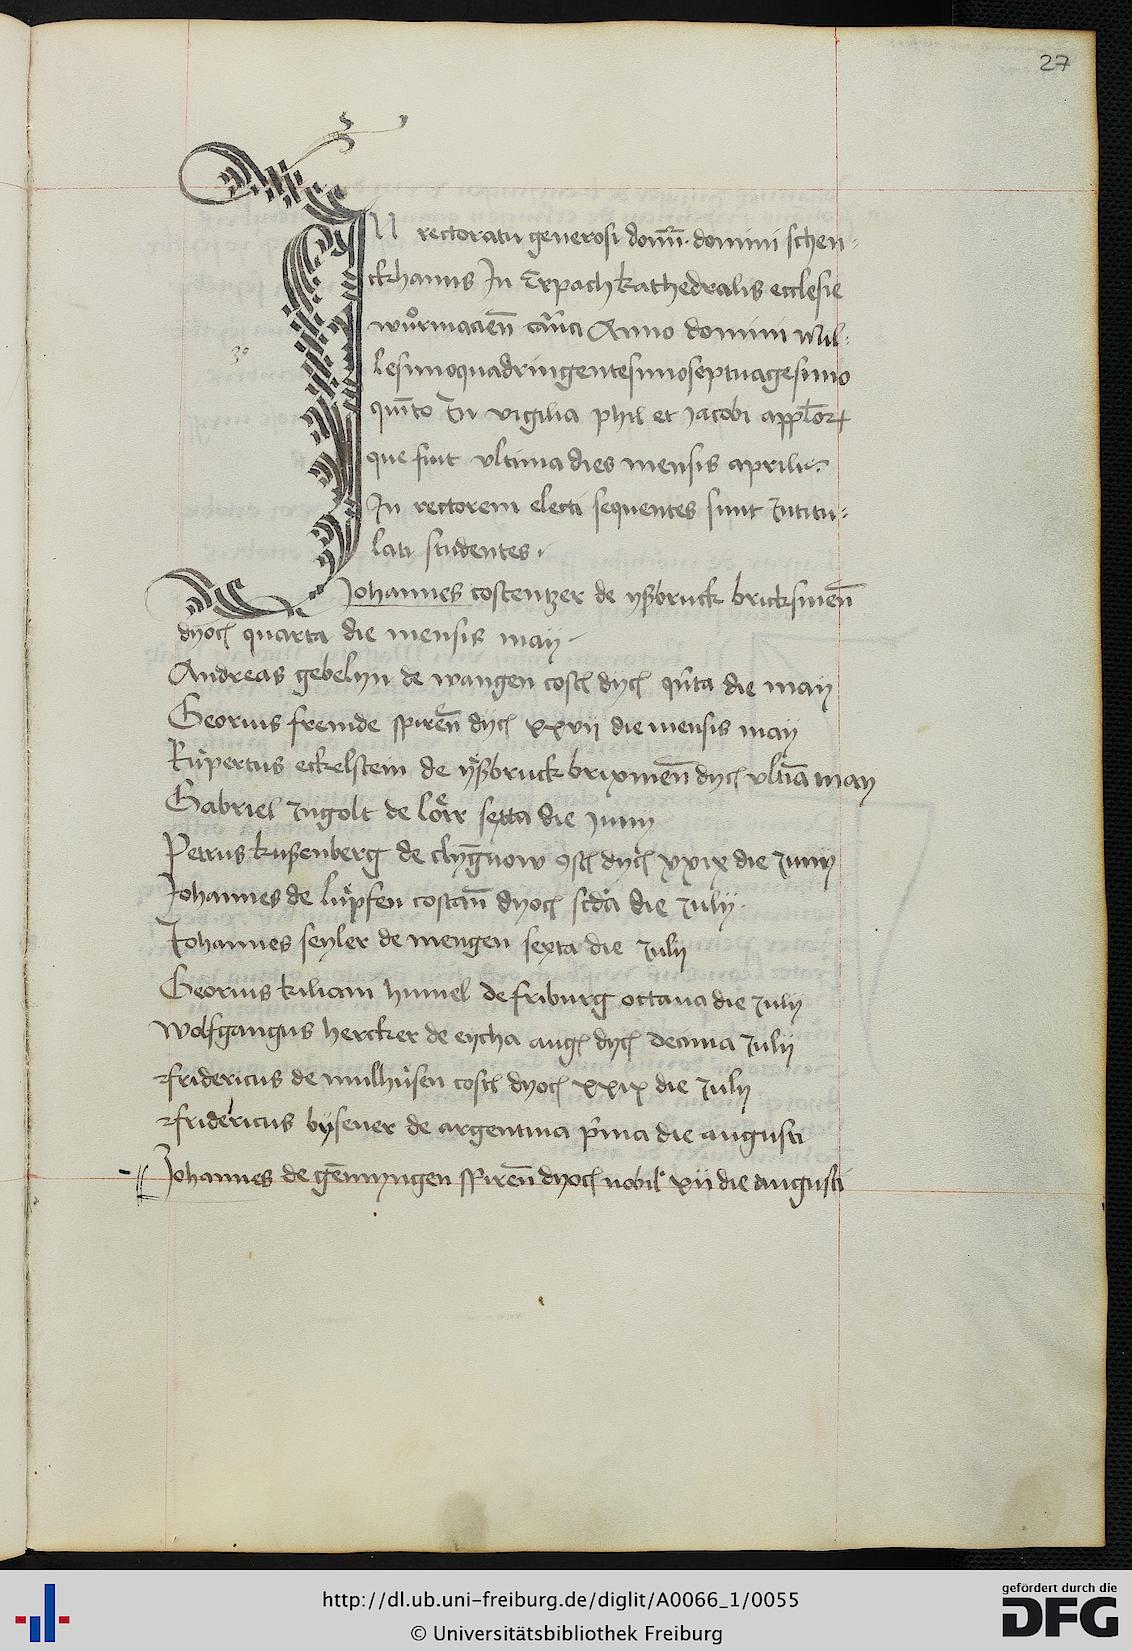 27
In rectoratu generosi domini domini schen-
ckhanns In Erpach kathedralis ecclesie
wůrmacien̄ cano͞ci Anno domini Mil-
lesimoquadringentesimoseptuagesimo
30
quīto In vigilia phil et Jacobi
que fuit vltima dies mensis aprilis
In rectorem electi sequentes sunt Intitu-
lati studentes
Johannes costentzer de ysbruck bricksinen̄
dyoc quarta die mensis maij
Andreas gebelyn de wangen cost dyc quīta die maij
Georius fremde spiren̄ dyc xxvij die mensis maij
Růpertus eckelstein de ysbruck brixinen̄ dyc vltīa maij
Gabriel Ingolt de lörr sexta die Junij
Petrus kussenberg de clyḡnow dyc xxix die Junij
Johannes de lüpfen costan̄ dyoc scda die Julij
Johannes seyler de mengen sexta die Julij
Georius kiliani humel de friburg octaua die Julij
Wolfgangus hercker de eycha aug dyc Decima Julij
fridericus de mulhusen cost dyoc xxix die Julij
fridericus bysener de argentina p̄ma die augusti
Johannes de gēmyngen spiren̄ dyoc nobil xij die augusti
http://dl.ub.uni-freiburg.de/diglit/A0066_1/0055
© Universitätsbibliothek Freiburg
gefördert durch die
DFG